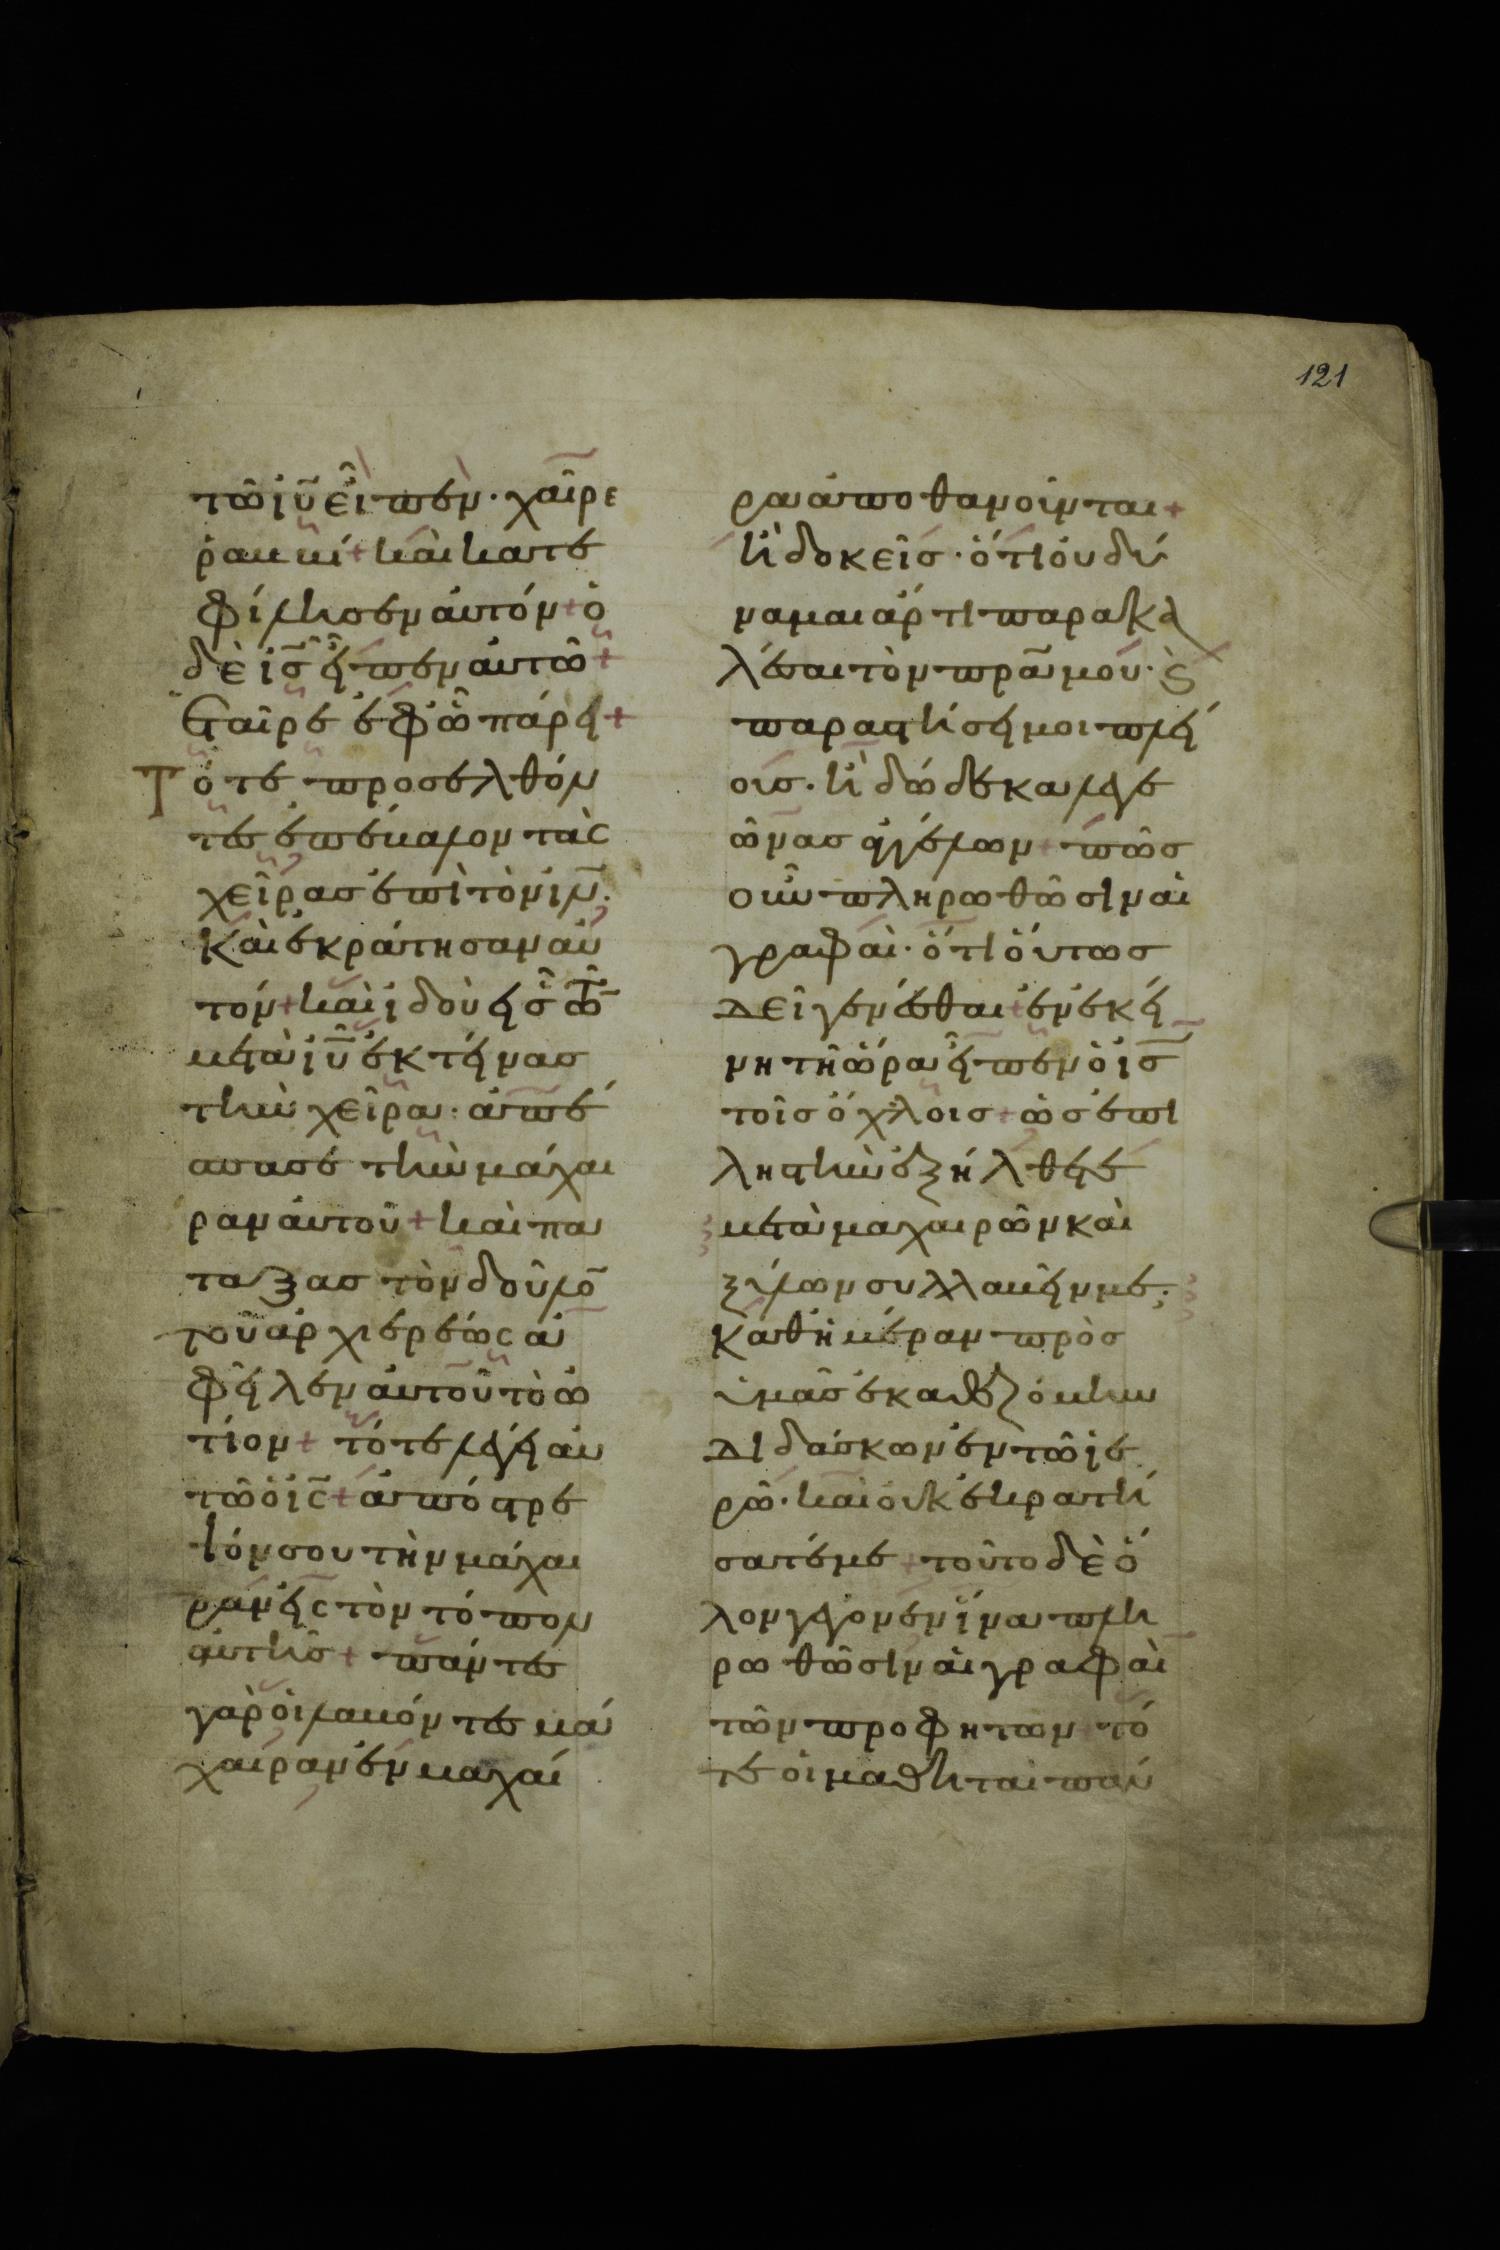 121
τῶ ιῡ εἶπεν· χαῖρε
ῥαββί + καὶ κατε
φίλησεν αὐτόν + ὁ
δὲ ις̄ εἶπεν αὐτῶ +
Ἑταῖρε ἐφ ὧ πάρει +
Τότε προσελθόν
τες ἐπέβαλον τὰς
χεῖρας ἐπὶ τὸν ιν̄·
Καὶ ἐκράτησαν αὐ
τόν + καὶ ἰδοὺ εἷς τῶ̅
μετὰ ιῡ ἐκτείνας
τὴν χεῖρα· ἀπέ
σπασε τὴν μάχαι
ραν αὐτοῦ + καὶ πα
τάξας τὸν δοῦλο̅
τοῦ ἀρχιερέως ἀ
φεῖλεν αὐτοῦ τὸ ὠ
τίον + τότε λέγει αὐ
τῶ ὁ ις̄ + ἀπόστρε
ψόν σου τὴν μάχαι
ραν εἰς τὸν τόπον
αὐτῆς + πάντες
γὰρ οἱ λαβόντες μά
χαιραν ἐν μαχαί
ρα ἀποθανοῦνται +
ἢ δοκεῖς· ὅτι οὐ δύ
ναμαι ἄρτι παρακα
λέσαι τὸν πρ̅α μου· ϗ
παραστήσει μοι πλεί
ους· ἢ δώδεκα λεγε
ῶνας ἀγγέλων + πῶς
οὖν πληρωθῶσιν αἱ
γραφαὶ· ὅτι οὕτως
δεῖ γενέσθαι + ἐν ἐκεί
νη τῆ ὥρα εἶπεν ὁ ις̄
τοῖς ὄχλοις + ὡς ἐπὶ
ληστὴν ἐξήλθετε
μετὰ μαχαιρῶν καὶ
ξύλων συλλαβεῖν με·
Καθ ἡμέραν πρὸς
ὑμᾶς ἐκαθεζόμην
διδάσκων ἐν τῶ ἱε
ρῶ· καὶ οὐκ ἐκρατή
σατέ με + τοῦτο δὲ ὅ
λον γέγονεν ἵνα πλη
ρωθῶσιν αἱ γραφαὶ
τῶν προφητῶν + τό
τε οἱ μαθηταὶ πάν